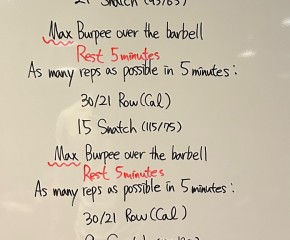 21 Snatch (95/65)
Max Burpee over the barbell
Rest 5 minutes
As many reps as possible in 5 minutes:
30/21 Row (Cal)
15 Snatch (115/75)
Max Burpee over the barbell
Rest 5 minutes
As many reps as possible in 5 minutes:
30/21 Row (Cal)